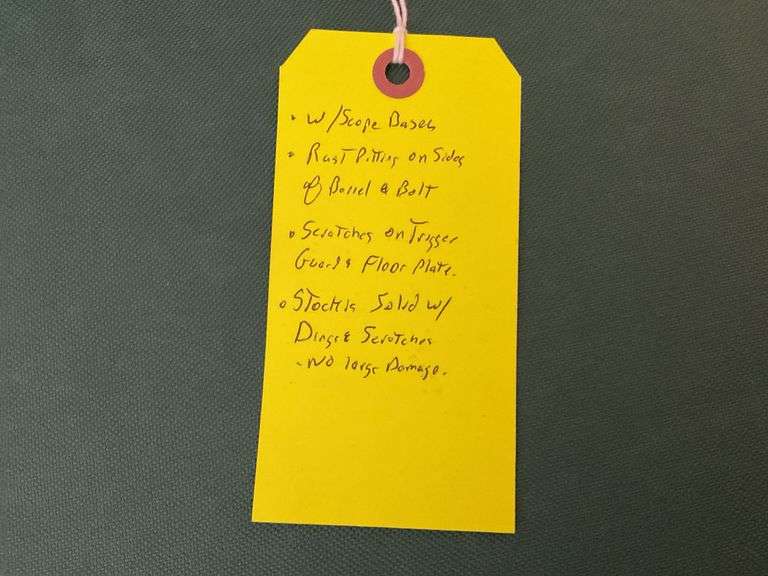 • W/Scope Bases
• Rust Pitting on Sides
of Barrel & Bolt
• Scratches on Trigger
Guard & Floor Plate.
• Stock is Solid w/
Dings & Scratches
- No large Damage.